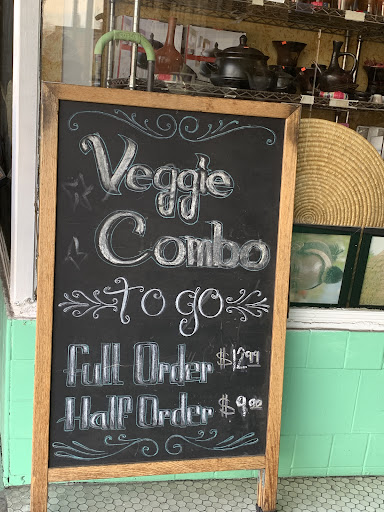 Veggie
Combo
to go
Full Order $12.99
Half Order $9.00